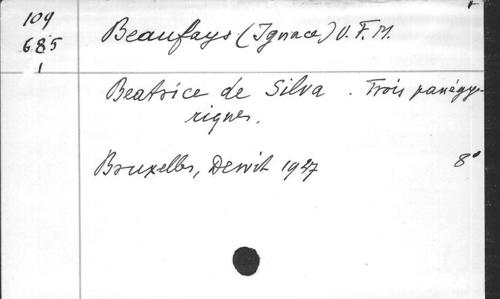 109 Beaufays (Ignace) O.F.M.
685
1
Beatrice de Silva. Trois panégy-
riques.
Bruxelles, Dewit 1927 8°